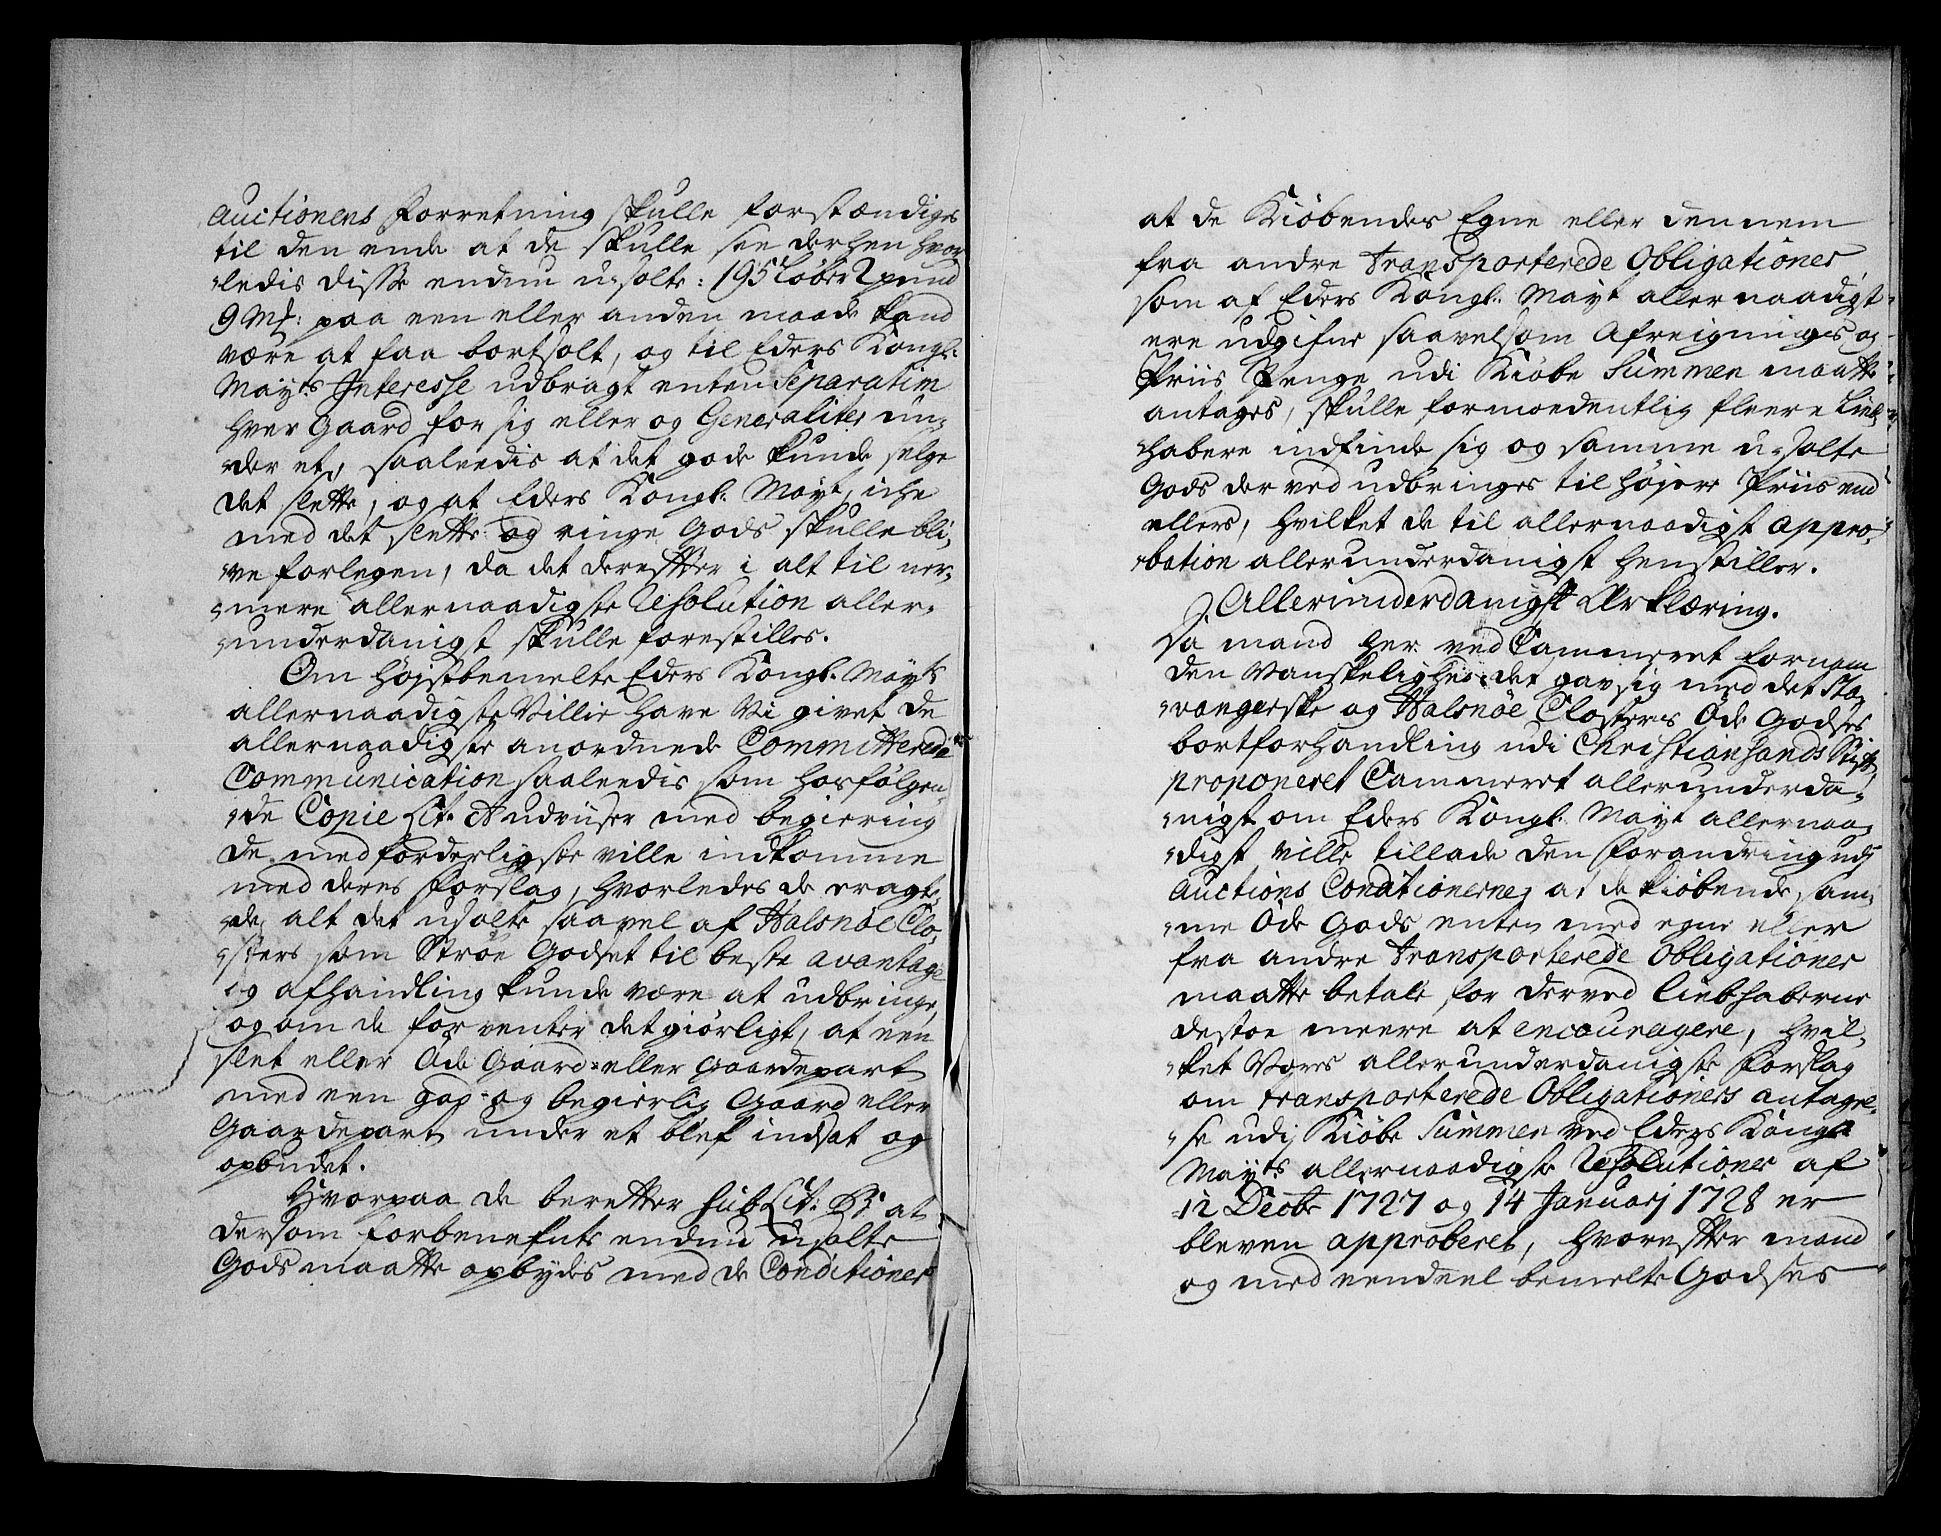 Auctionens Forretning skulle forstændiges
til den ende at de skulle see derhen hvor
ledis disse endnu u-solte: 195 Løber 2 pund
9 M&: paa een eller anden maade kand
være at faa bortsolt, og til Eders Kongl:
Mayts Interesse udbragt enten Separatim
hver Gaard for sig eller og Generaliter un,
der et, saaleedis at det gode kunde selge
det slette, og at Eders Kongl: Mayt, iche
med det slette og ringe Gods skulle bli,
ve forlegen, da det derefter i alt til ner,
mere allernaadigste Resolution aller,
underdanigst skulle forestilles.
Om højstbemelte Eders Kongl. Mayts
allernaadigste Villie have Vi givet de
allernaadigste anordnede Committerede
Communication saaleedis som hosfølgen,
de Copie Lit. A udviiser med begiering
de med forderligste ville indkomme
med deres Forslag, hvorledes de eragte,
de, alt det usolte saavel af Halsnöe Clo,
sters som Ströe Godset til beste avantage
og afhandling kunde være at udbringe,
og om de forventer det giörligt, at een
slet eller Öde Gaard- eller Gaardepart
med een god - og begierlig Gaard eller
Gaardepart under et blef indsat og
opbudet.
Hvorpaa de beretter sub Lit: B: at
dersom forbenefnte endnu usolte
Gods maatte opbydes med de Conditioner
at de Kiöbendes Egne eller dennem
fra andre transporterede Obligationer
som af Eders Kongl. Mayt allernaadigst
ere udgifne saavelsom Afreignings og
Priis Penge udi Kiöbe Summen maatte
antages, skulle formoedentlig fleere Lieb,
habere indfinde sig og samme u-solte
Gods derved udbringes til højere Priis end
ellers, hvilket de til allernaadigst appro,
bation allerunderdanigst henstiller.
Allerunderdanigst Erklæring.
Da mand her ved Cammeret fornam
den Vanskelighed det gav sig med det Sta,
vangerske og Halsnöe Closters Öde Godses
bortforhandling udi Christiansands Stift,
proponeret Cammeret allerunderda,
nigst om Eders Kongl. Mayt allernaa,
digst ville tillade den forandring udj
Auctions Conditionerne, at de kiöbende, sam,
me Öde Gods enten med egne eller
fra andre transporterede Obligationer
maatte betale, for derved Liebhaberne
destoe meere at encouragere, hvil,
ket Vores allerunderdanigste Forslag
om transporterede Obligationers antagel,
se udj Kiöbe Summen ved Eders Kongl.
Mayts allernaadigste Resolutioner af
12 Decbr 1727 og 14 Januarj 1728 er
bleven approberet, hvorefter mand
og med eendeel bemelte Godses